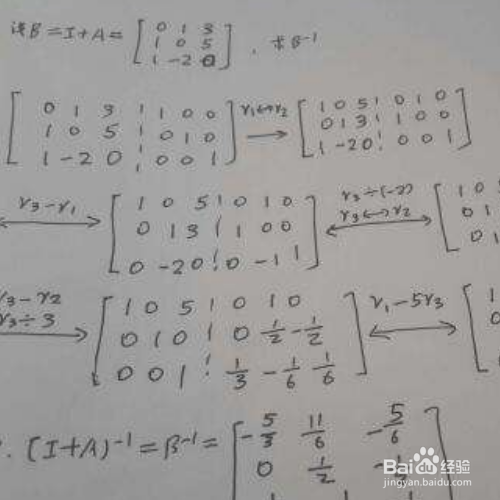 设B=I+A= [0 1 3
1 0 5
1 -2 0], 求B⁻¹
[0 1 3 ¦ 1 0 0
1 0 5 ¦ 0 1 0
1 -2 0 ¦ 0 0 1] r₁↔r₂ → [1 0 5 ¦ 0 1 0
0 1 3 ¦ 1 0 0
1 -2 0 ¦ 0 0 1]
r₃-r₁ ↔ [1 0 5 ¦ 0 1 0
0 1 3 ¦ 1 0 0
0 -2 0 ¦ 0 -1 1] r₃÷(-2) r₃↔r₂ ↔ [1 0
0 1
0 1
r₃-r₂ r₃÷3 → [1 0 5 ¦ 0 1 0
0 1 0 ¦ 0 1/2 -1/2
0 0 1 ¦ 1/3 -1/6 1/6] r₁-5r₃ ↔ [
(I+A)⁻¹=B⁻¹= [-5/3 11/6 -5/6
0 1/2
Bai du 经验
jingyan.baidu.com